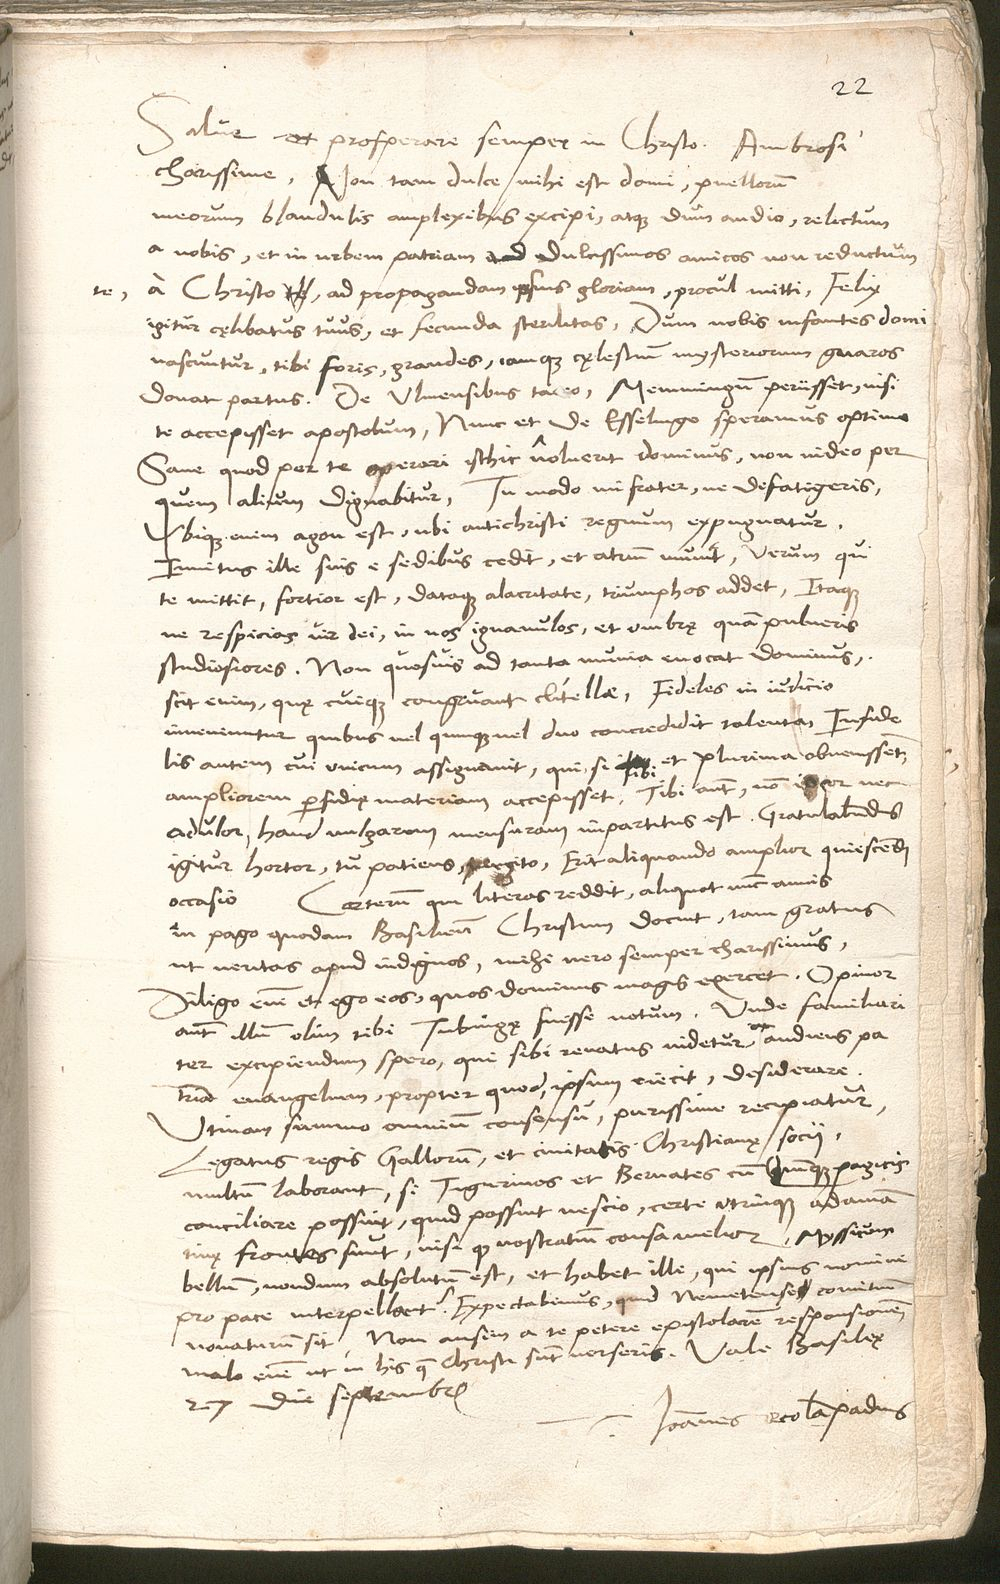 22
Salue et prosperare semper in Christo. Ambrosi
charissime, Non tam dulce mihi est domi, puellorū
meorum blandulis amplexibus excipi, atq dum audio, relictum
a nobis, et in urbem patriam ad dulcissimos amicos non reductum
te, à Christo, ad propagandam ipsius gloriam, procul mitti, Felix
igitur cęlibatus tuus, et fecunda sterilitas, Dum nobis infantes domi
nascuntur, tibi foris, grandes, iamq cęlestium mysteriorum gnaros
donat partus. De Vlmensibus taceo, Memmingū periisset, nisi
te accepisset apostolum, Nunc et de Esselingo speramus optime
Sane quod per te operari isthic noluerit dominus, non uideo per
quem alium dignabitur, Tu modo mi frater, ne defatigeris,
Vbiq enim agon est, ubi antichristi regnum expugnatur,
Inuitus ille suis e sedibus cedit, et atrium munit, Verum qui
te mittit, fortior est, dataq alacritate, triumphos addet, Itaq
ne respicias uir dei, in nos ignauulos, et umbrę quā pulueris
studiosiores. Non quosuis ad tanta munia euocat dominus,
scit enim, quę cuiq congruant clitellae, Fideles in iudicio
inueniuntur quibus uel quinq uel duo concredidit talenta, Infide
lis autem cui unicum assignauit, qui si sibi et plurima obuenissent,
ampliorem pfidię materiam accepisset, Tibi aūt, nō iocor nec
adulor, haud uulgarem mensuram impartitus est. Gratulabundus
igitur hortor, tu patiens, pergito, Erit aliquando amplior quiescendi
occasio Caeterū qui literas reddit, aliquot nūc annis
in pago quodam Basilien̄ Christum docuit, tam gratus
ut ueritas apud indignos, mihi uero semper charissimus,
Diligo eni et ego eos, quos dominus magis exercet. Opinor
aūt illū olim tibi Tubingę fuisse notum. Vnde familiari
ter excipiendum spero, qui sibi renatus uidetur, audiens pa
triā euangelium, propter quod, ipsum eiecit, desiderare.
Vtinam summo omniū consensu, purissime recipiatur,
Legatus regis Gallorū, et ciuitatis Christianę socij,
multū laborant, si Tigurinos et Bernates cū Quinq pagicis
conciliare possint, quid possint nescio, certe utrinq adaman
tinę frontes sunt, nisi q nostratiū causa melior, Myssicum
bellū, nondum absolutū est, et habet ille, qui ipsius nomine
pro pace interpellent. Expectabimus, quid Nemetense comitiū
nouaturū sit, Non ausim a te petere epistolarē responsionē
malo enī ut in his q Christi sūt uerseris. Vale Basileę
27 die septembrs
Ioānes oecolāpadius